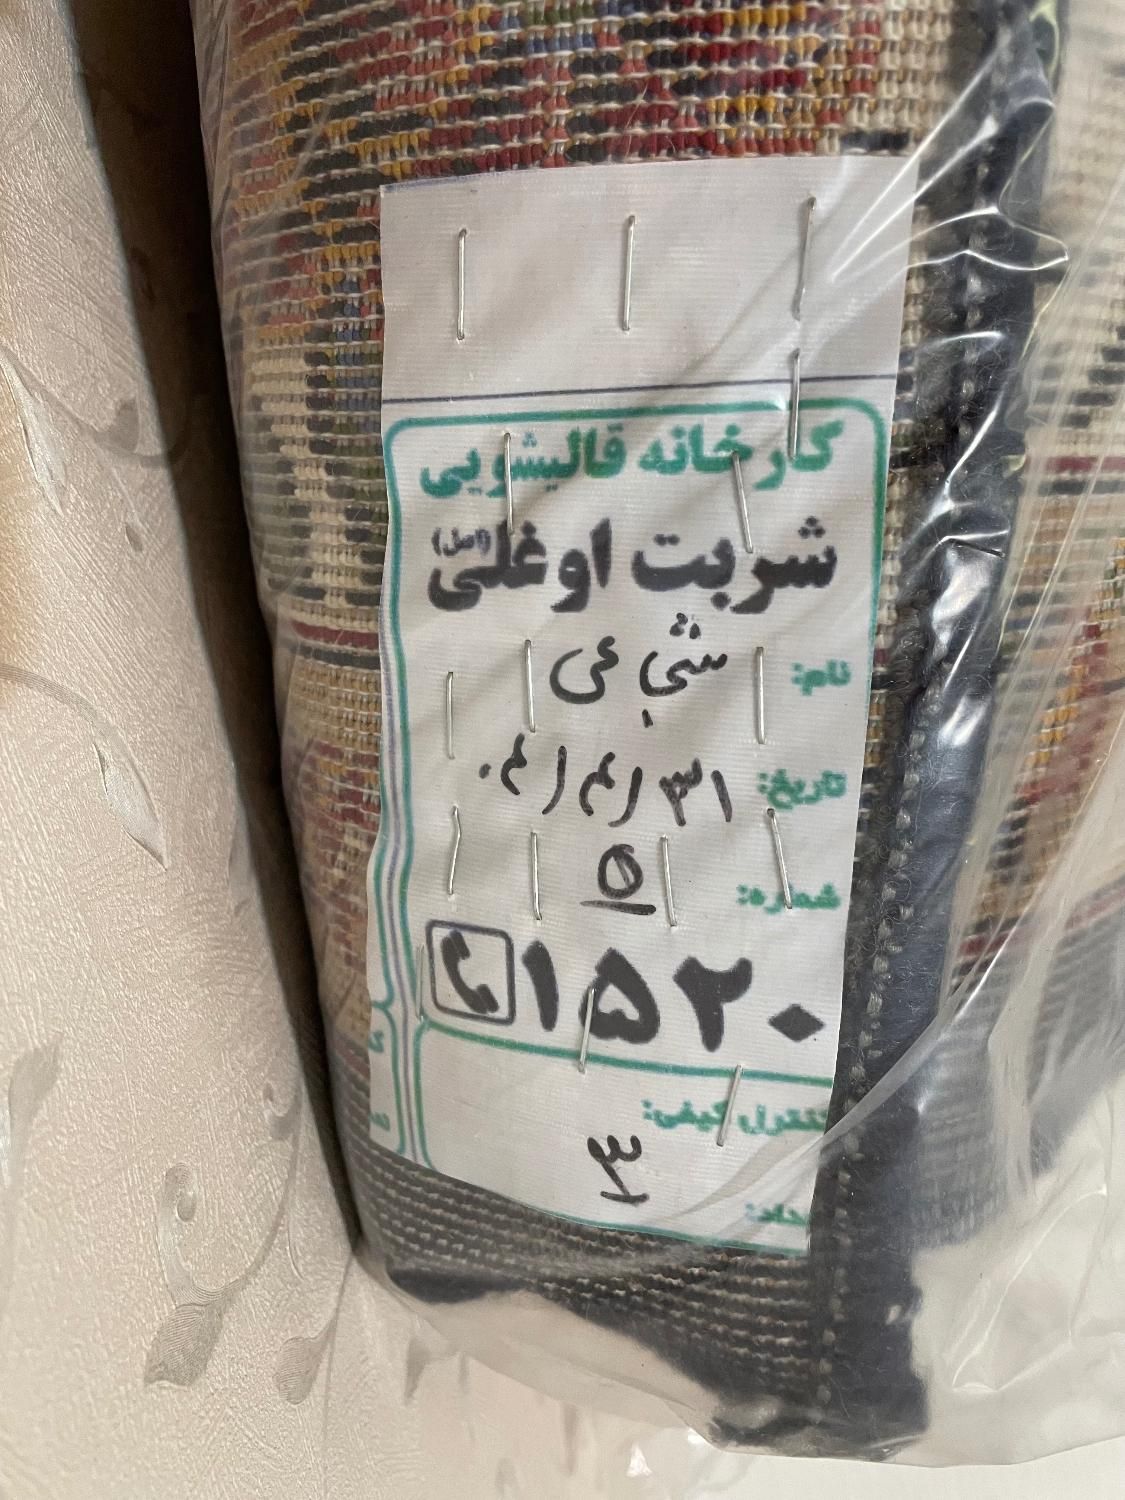 کارخانه قالیشویی
شربت اوغلی (اصل)
نام: شجاعی
تاریخ:
شماره: ۵
۱۵۲۰
کنترل کیفی:
۳
تعداد: